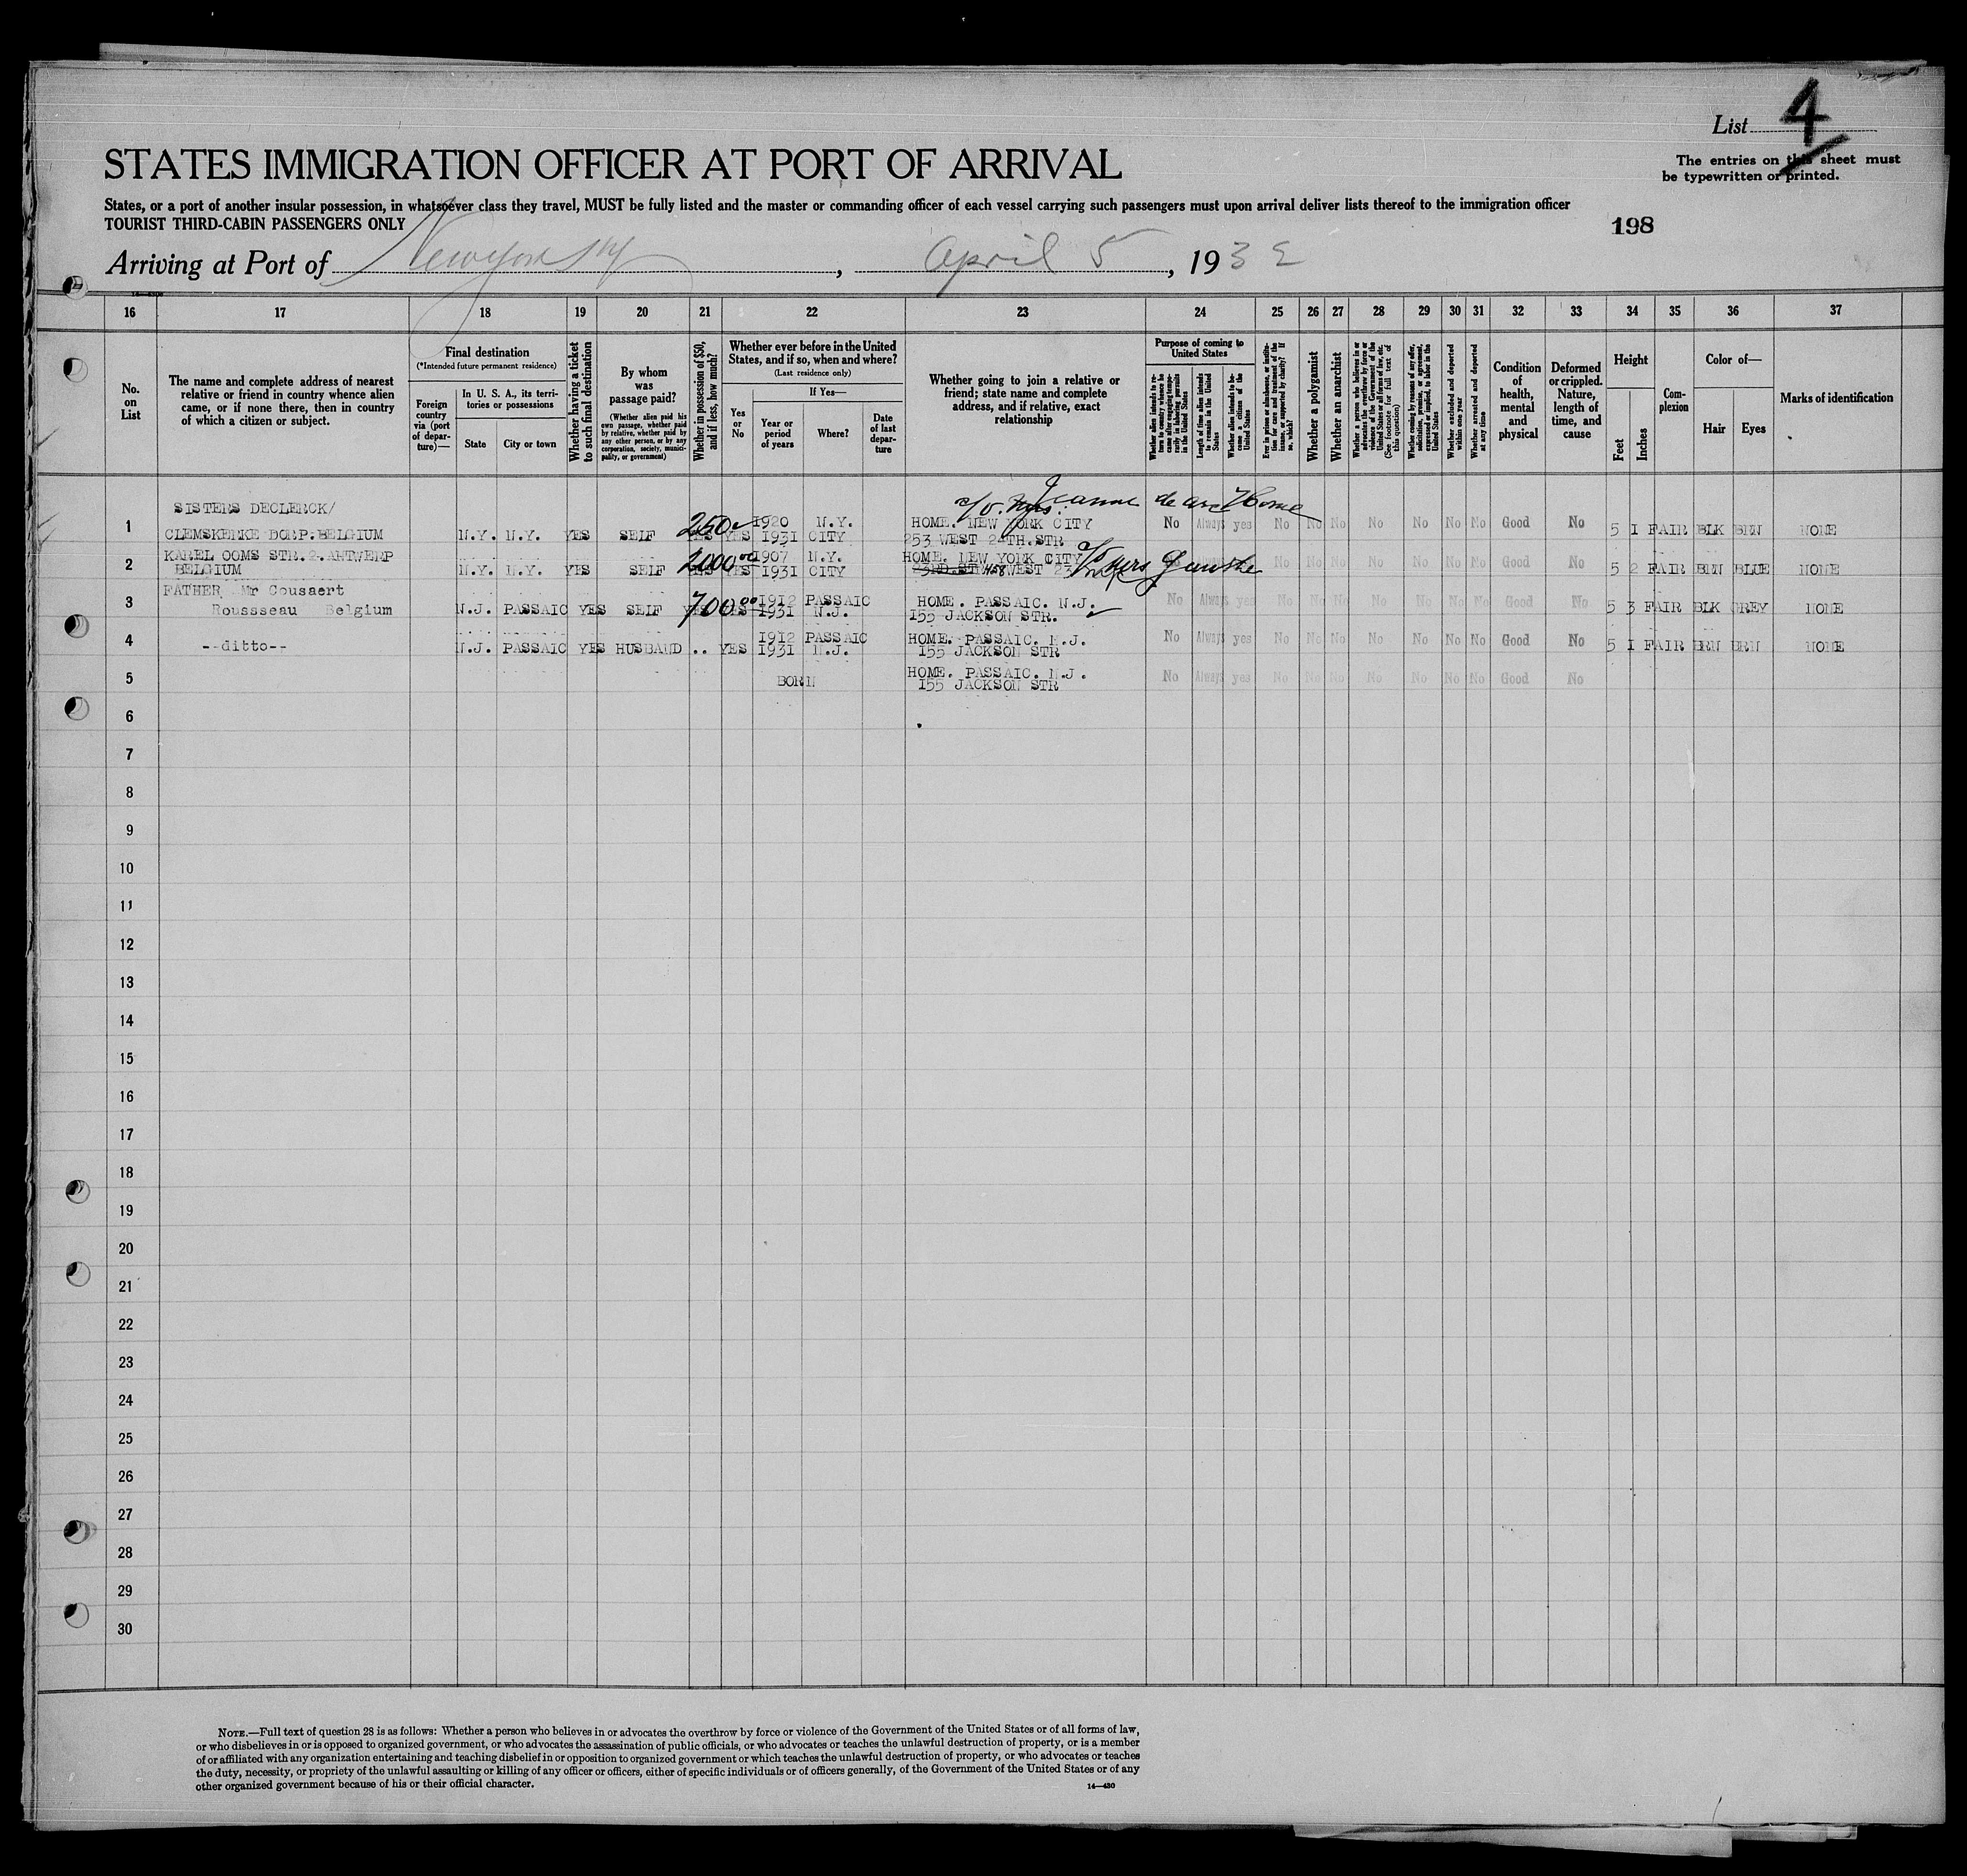 List 4
STATES IMMIGRATION OFFICER AT PORT OF ARRIVAL
The entries on this sheet must
be typewritten or printed.
States, or a port of another insular possession, in whatsoever class they travel, MUST be fully listed and the master or commanding officer of each vessel carrying such passengers must upon arrival deliver lists thereof to the immigration officer
TOURIST THIRD-CABIN PASSENGERS ONLY
198
Arriving at Port of New York NY, April 5, 1932
16 17 18 19 20 21 22 23 24 25 26 27 28 29 30 31 32 33 34 35 36 37
No. on List
The name and complete address of nearest relative or friend in country whence alien came, or if none there, then in country of which a citizen or subject.
Final destination
(*Intended future permanent residence)
Foreign country via (port of departure)—
In U. S. A., its territories or possessions
State
City or town
Whether having a ticket to such final destination
By whom was passage paid?
(Whether alien paid his own passage, whether paid by relative, whether paid by any other person, or by any corporation, society, municipality, or government)
Whether in possession of $50, and if less, how much?
Whether ever before in the United States, and if so, when and where?
(Last residence only)
Yes or No
If Yes—
Year or period of years
Where?
Date of last departure
Whether going to join a relative or friend; state name and complete address, and if relative, exact relationship
Purpose of coming to United States
Whether alien intends to return to country whence he came after engaging temporarily in laboring pursuits in the United States
Length of time alien intends to remain in the United States
Whether alien intends to become a citizen of the United States
Ever in prison or almshouse, or institution for care and treatment of the insane, or supported by charity? If so, which?
Whether a polygamist
Whether an anarchist
Whether a person who believes in or advocates the overthrow by force or violence of the Government of the United States or all forms of law, etc. (See footnote for full text of this question)
Whether coming by reasons of any offer, solicitation, promise, or agreement, expressed or implied, to labor in the United States
Whether excluded and deported within one year
Whether arrested and deported at any time
Condition of health, mental and physical
Deformed or crippled. Nature, length of time, and cause
Height
Feet
Inches
Complexion
Color of—
Hair
Eyes
Marks of identification
SISTERS DECLERCK/ c/o Jeanne de arc Home
1 CLEMSKERKE DORP.BELGIUM N.Y. N.Y. YES SELF 250 YES 1920 1931 N.Y. CITY HOME. NEW YORK CITY 253 WEST 24TH.STR No Always yes No No No No No No No Good No 5 1 FAIR BLK BRN NONE
KAREL OOMS STR.2.ANTWERP
2 BELGIUM N.Y. N.Y. YES SELF 2000 00 YES 1907 1931 N.Y. CITY HOME. NEW YORK CITY 458 WEST 23 c/o Mrs No No No No No No No Good No 5 2 FAIR BRN BLUE NONE
FATHER Mr Cousaert
3 Roussseau Belgium N.J. PASSAIC YES SELF 700 00 YES 1912 1931 PASSAIC N.J. HOME. PASSAIC. N.J. 155 JACKSON STR. No Always yes No No No No No No No Good No 5 3 FAIR BLK GREY NONE
4 --ditto-- N.J. PASSAIC YES HUSBAND .. YES 1912 1931 PASSAIC N.J. HOME. PASSAIC. N.J. 155 JACKSON STR No Always yes No No No No No No No Good No 5 1 FAIR BRN BRN NONE
5 BORN HOME. PASSAIC. N.J. 155 JACKSON STR No Always yes No No No No No No No Good No
6
7
8
9
10
11
12
13
14
15
16
17
18
19
20
21
22
23
24
25
26
27
28
29
30
NOTE.—Full text of question 28 is as follows: Whether a person who believes in or advocates the overthrow by force or violence of the Government of the United States or of all forms of law,
or who disbelieves in or is opposed to organized government, or who advocates the assassination of public officials, or who advocates or teaches the unlawful destruction of property, or is a member
of or affiliated with any organization entertaining and teaching disbelief in or opposition to organized government or which teaches the unlawful destruction of property, or who advocates or teaches
the duty, necessity, or propriety of the unlawful assaulting or killing of any officer or officers, either of specific individuals or of officers generally, of the Government of the United States or of any
other organized government because of his or their official character.
14—430